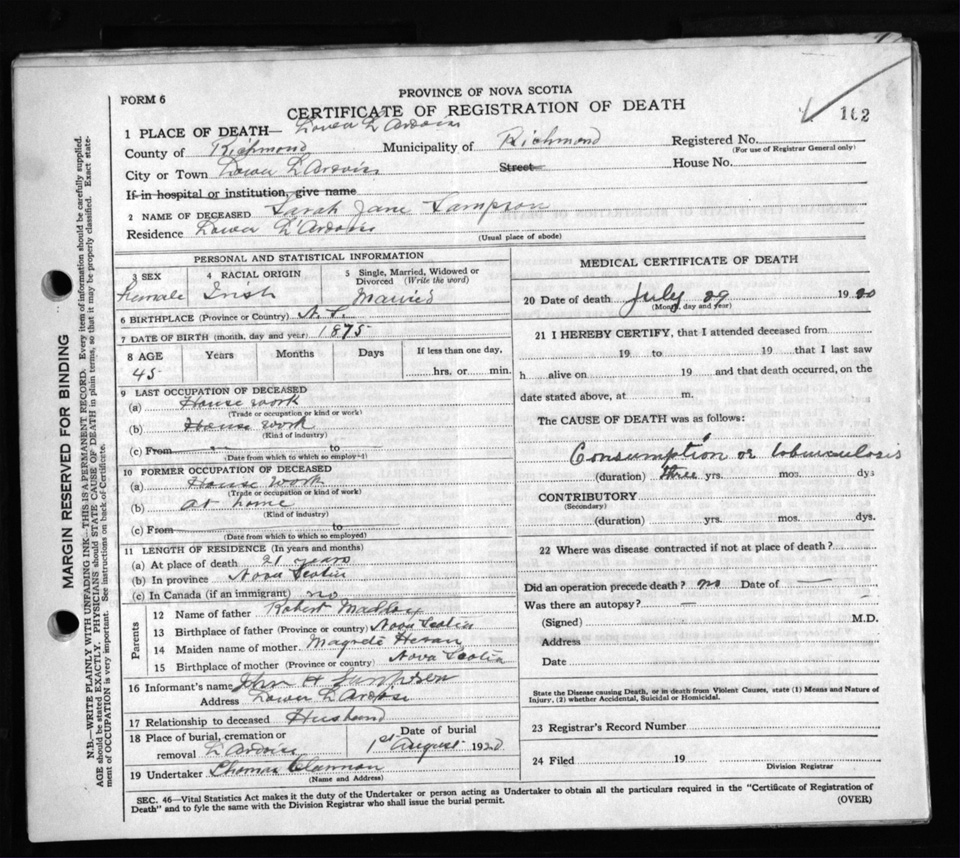 FORM 6
PROVINCE OF NOVA SCOTIA
CERTIFICATE OF REGISTRATION OF DEATH
112
1 PLACE OF DEATH— Lower L'Ardoise
County of Richmond Municipality of Richmond Registered No.
(For use of Registrar General only)
City or Town Lower L'Ardoise Street House No.
If in hospital or institution, give name
2 NAME OF DECEASED Sarah Jane Sampson
Residence Lower L'Ardoise
(Usual place of abode)
PERSONAL AND STATISTICAL INFORMATION
3 SEX 4 RACIAL ORIGIN 5 Single, Married, Widowed or Divorced (Write the word)
Female Irish Married
6 BIRTHPLACE (Province or Country) N.S.
7 DATE OF BIRTH (month, day and year) 1875
8 AGE Years Months Days If less than one day,
45 hrs. or min.
9 LAST OCCUPATION OF DECEASED
(a) House work
(Trade or occupation or kind or work)
(b) House work
(Kind of industry)
(c) From to
(Date from which to which so employed)
10 FORMER OCCUPATION OF DECEASED
(a) House work
(Trade or occupation or kind of work)
(b) At home
(Kind of industry)
(c) From to
(Date from which to which so employed)
11 LENGTH OF RESIDENCE (In years and months)
(a) At place of death 21 years
(b) In province Nova Scotia
(c) In Canada (if an immigrant) no
Parents
12 Name of father Robert
13 Birthplace of father (Province or country) Nova Scotia
14 Maiden name of mother
15 Birthplace of mother (Province or country) Nova Scotia
16 Informant's name John H Sampson
Address Lower L'Ardoise
17 Relationship to deceased Husband
18 Place of burial, cremation or removal L'Ardoise Date of burial 1st August 1920
19 Undertaker Thomas
(Name and Address)
MEDICAL CERTIFICATE OF DEATH
20 Date of death July 29 1920
(Month, day and year)
21 I HEREBY CERTIFY, that I attended deceased from
19 to 19 that I last saw
h alive on 19 and that death occurred, on the
date stated above, at m.
The CAUSE OF DEATH was as follows:
Consumption or tuberculosis
(duration) three yrs. mos. dys
CONTRIBUTORY
(Secondary)
(duration) yrs. mos. dys.
22 Where was disease contracted if not at place of death?
Did an operation precede death? no Date of —
Was there an autopsy? —
(Signed) M.D.
Address
Date
State the Disease causing Death, or in death from Violent Causes, state (1) Means and Nature of
Injury, (2) whether Accidental, Suicidal or Homicidal.
23 Registrar's Record Number
24 Filed 19
Division Registrar
SEC. 46—Vital Statistics Act makes it the duty of the Undertaker or person acting as Undertaker to obtain all the particulars required in the "Certificate of Registration of
Death" and to fyle the same with the Division Registrar who shall issue the burial permit. (OVER)
MARGIN RESERVED FOR BINDING
N.B.—WRITE PLAINLY WITH UNFADING INK—THIS IS A PERMANENT RECORD. Every item of information should be carefully supplied.
AGE should be stated EXACTLY. PHYSICIANS should STATE CAUSE OF DEATH in plain terms, so that it may be properly classified. Exact statement of OCCUPATION is very important. See instructions on back of Certificate.